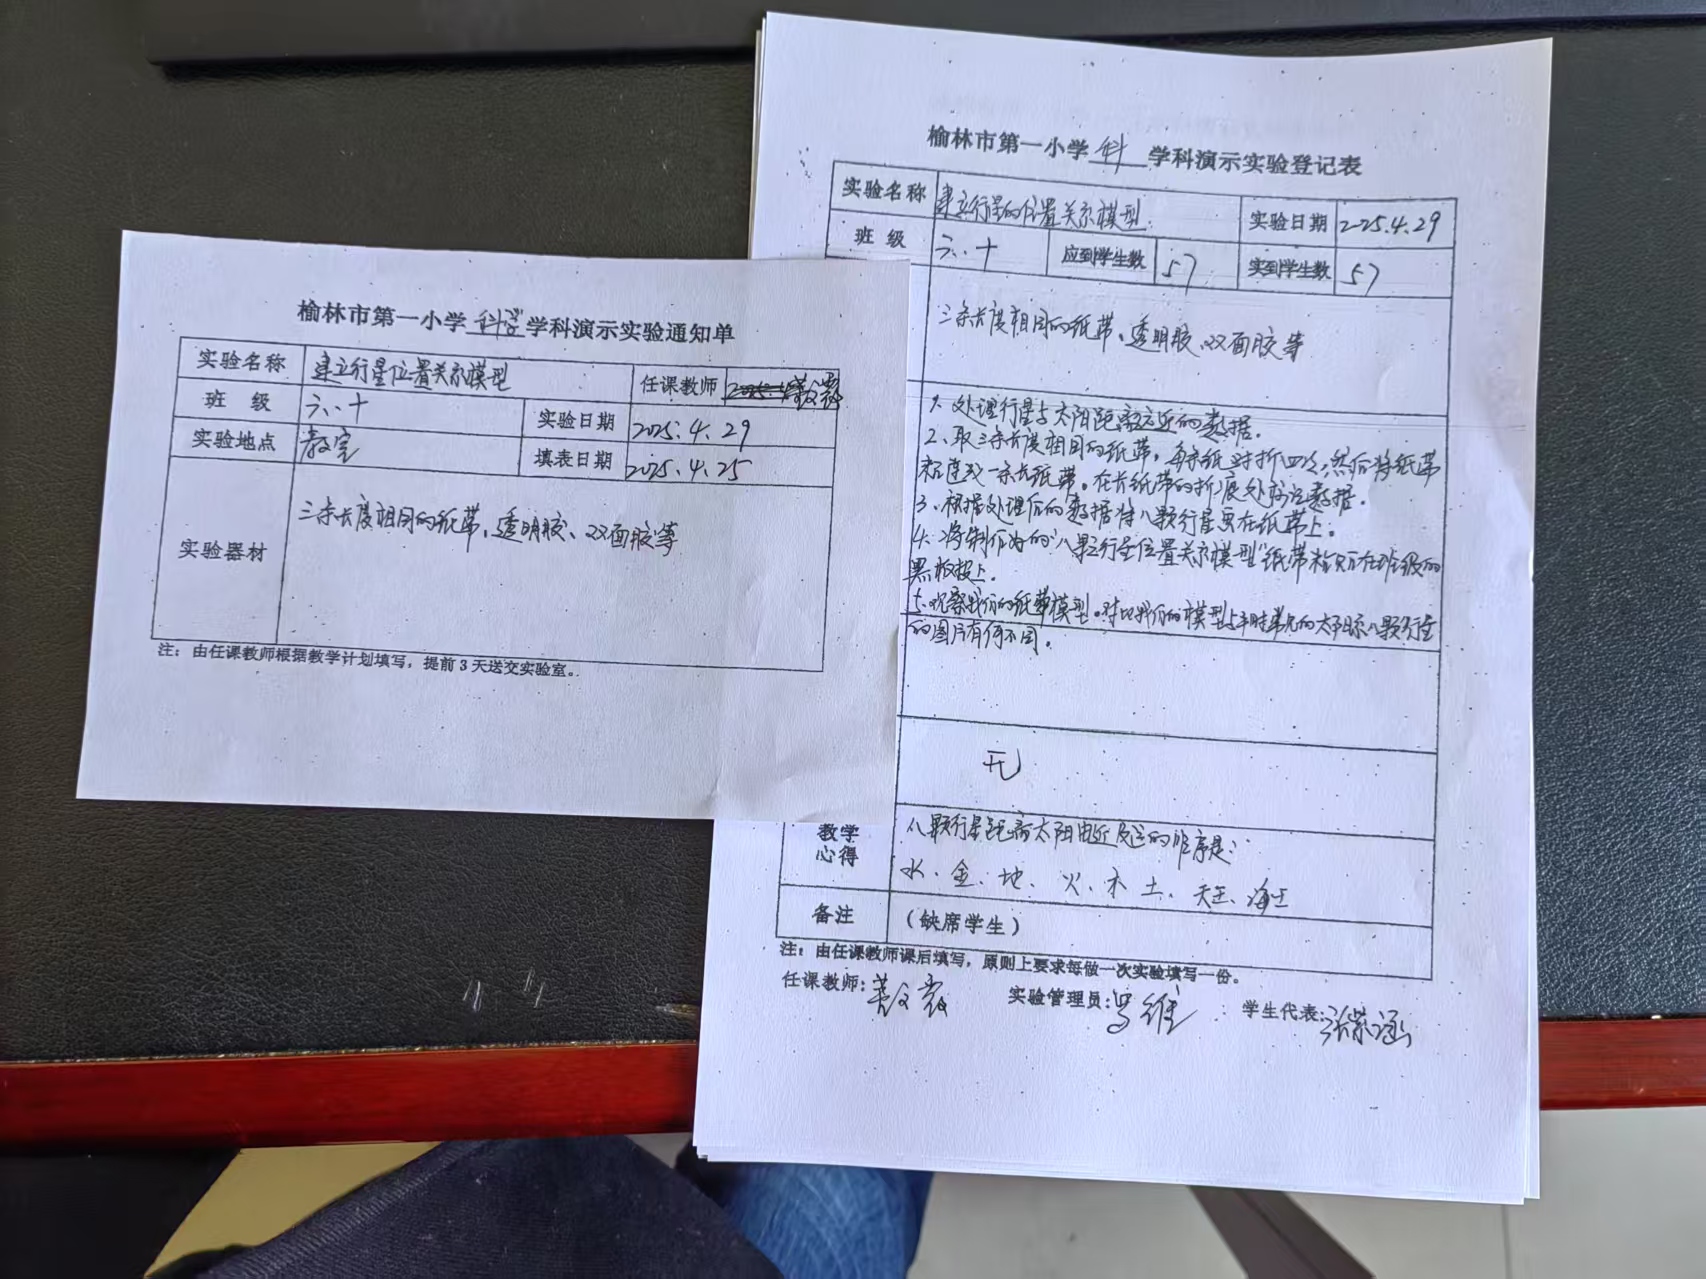 榆林市第一小学 科学 学科演示实验通知单
实验名称 建立行星位置关系模型 任课教师
班 级 六、十 实验日期 2025.4.29
实验地点 教室 填表日期 2025.4.25
实验器材 三条长度相同的纸带、透明胶、双面胶等
注：由任课教师根据教学计划填写，提前3天送交实验室。
榆林市第一小学 科 学科演示实验登记表
实验名称 建立行星的位置关系模型 实验日期 2025.4.29
班 级 六、十 应到学生数 57 实到学生数 57
三条长度相同的纸带、透明胶、双面胶等
1、处理行星与太阳距离远近的数据。
2、取三条长度相同的纸带，每条纸对折四次，然后将纸带
粘连成一条长纸带。在长纸带的折痕处标注数据。
3、根据处理后的数据将八颗行星画在纸带上。
4、将制作好的“八颗行星位置关系模型”纸带粘贴在班级的
黑板报上。
5、观察我们的纸带模型。对比我们的模型与单元的太阳系八颗行星
的图片有何不同。
无
教学
心得
八颗行星距离太阳由近及远的排序是：
水、金、地、火、木、土、天王、海王
备注 （缺席学生）
注：由任课教师课后填写，原则上要求每做一次实验填写一份。
任课教师： 实验管理员： 学生代表：